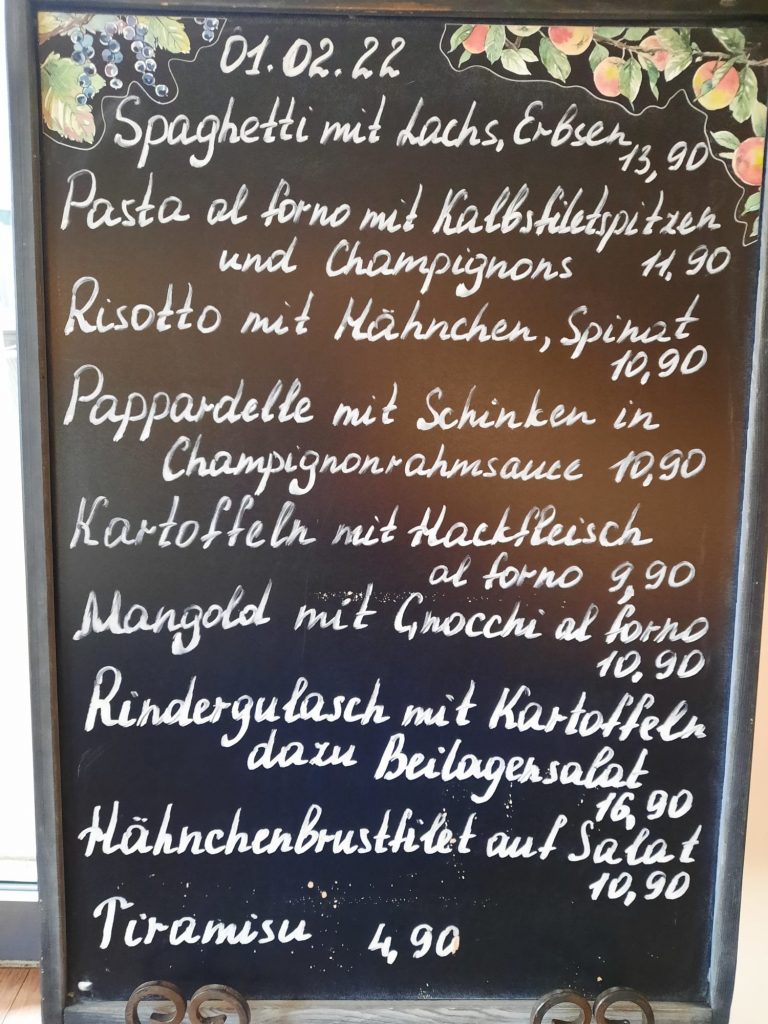 01.02.22
Spaghetti mit Lachs, Erbsen
13,90
Pasta al forno mit Kalbsfiletspitzen
und Champignons 11,90
Risotto mit Hähnchen, Spinat
10,90
Pappardelle mit Schinken in
Champignonrahmsauce 10,90
Kartoffeln mit Hackfleisch
al forno 9,90
Mangold mit Gnocchi al forno
10,90
Rindergulasch mit Kartoffeln
dazu Beilagensalat
16,90
Hähnchenbrustfilet auf Salat
10,90
Tiramisu 4,90